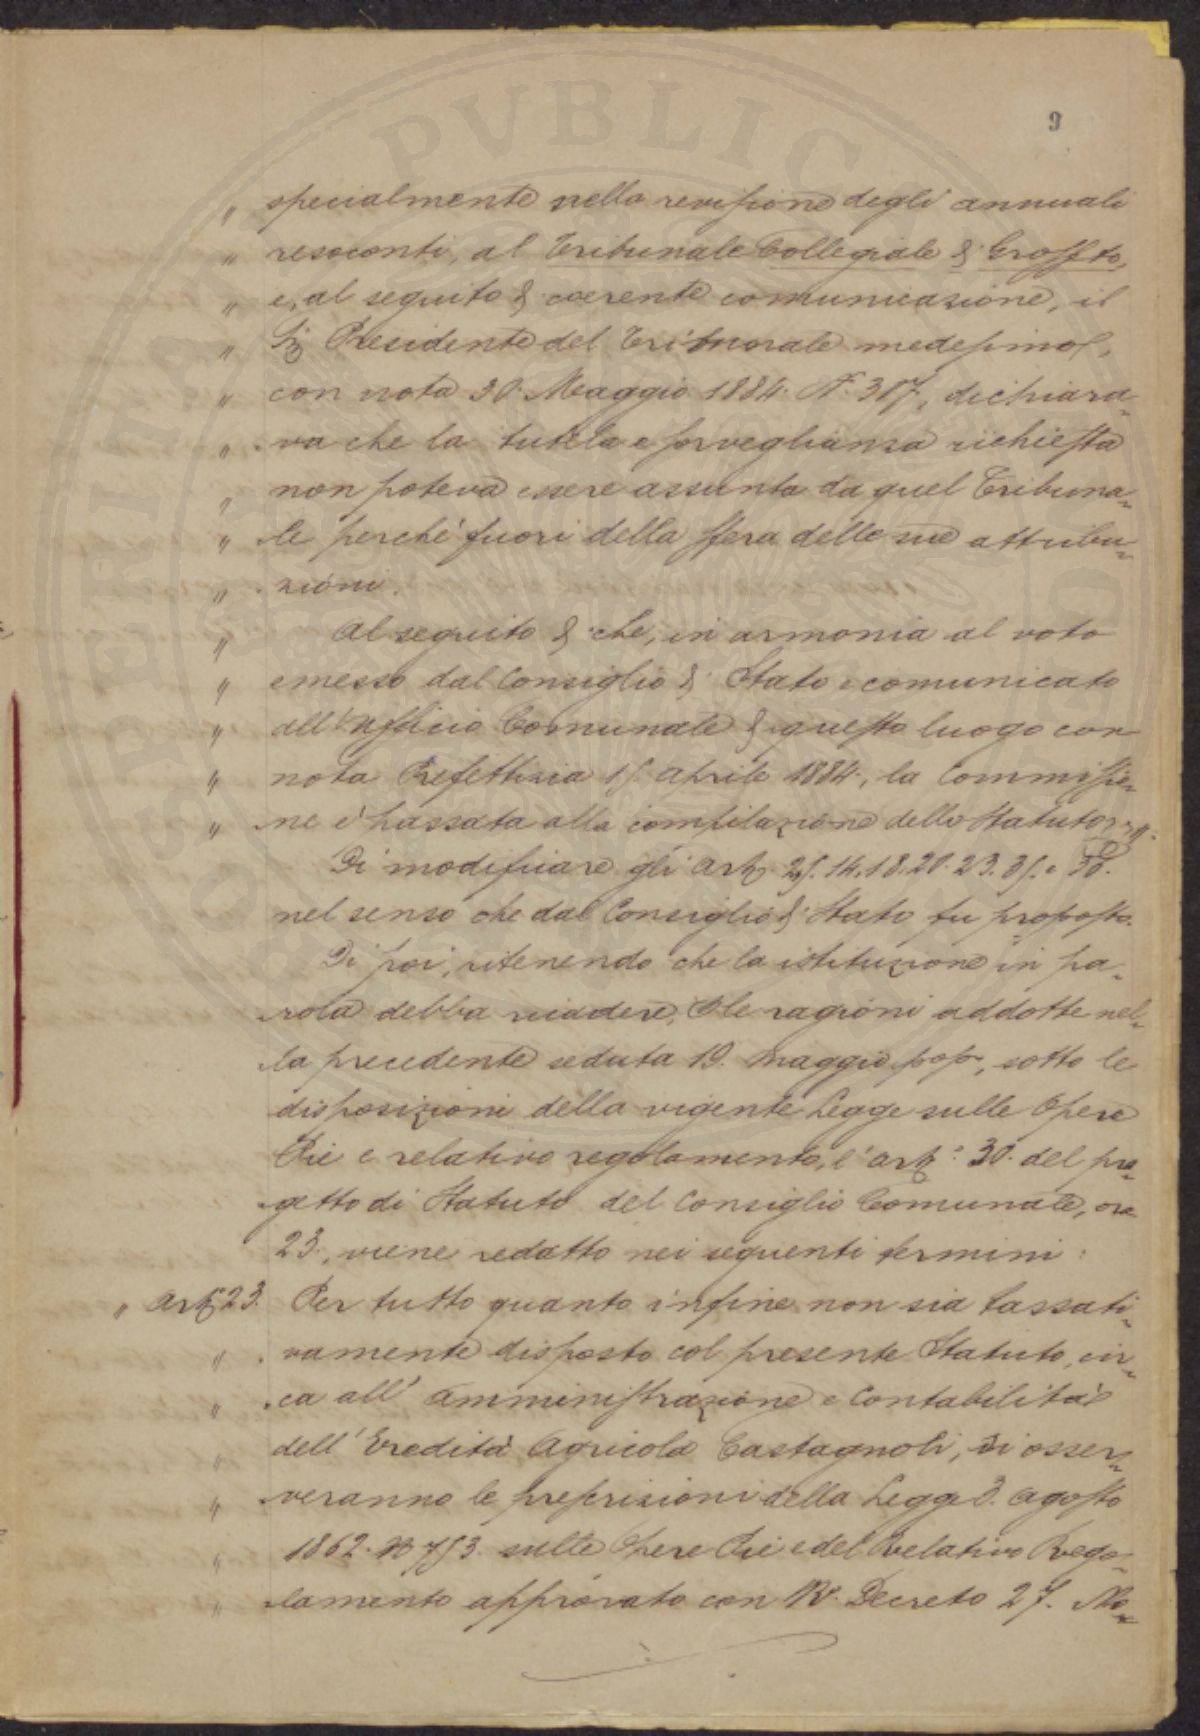 9
" specialmente nella revisione degli annuali
" resoconti, al Tribunale Collegiale di Grosseto,
" e, al seguito di coerente comunicazione, il
" Sig Presidente del Tribunale medesimo,
" con nota 30. Maggio 1884. N. 317, dichiara-
" va che la tutela e sorveglianza richiesta
" non poteva essere assunta da quel Tribuna-
" le perché fuori della sfera delle sue attribu-
" zioni.
" Al seguito di che, in armonia al voto
" emesso dal Consiglio di Stato e comunicato
" all'Ufficio Comunale di questo luogo con
" nota Prefettizia 15. Aprile 1884., la Commissio-
" ne è passata alla compilazione dello Statuto
Di modificare gli Art. 14. 18. 20. 23. 35. e
nel senso che dal Consiglio di Stato fu proposto.
Di poi, ritenendo che la istituzione in pa-
rola debba ricadere, le ragioni addotte nel-
la precedente seduta 19. Maggio pop, sotto le
disposizioni della vigente Legge sulle Opere
Pie e relativo regolamento, l'art: 30. del pro-
getto di Statuto del Consiglio Comunale, ora
23., viene redatto nei seguenti termini:
" Art 23. Per tutto quanto infine non sia tassati-
" vamente disposto col presente Statuto, cir-
" ca all'Amministrazione e Contabilità
" dell'Eredità Agricola Castagnoli, si osser-
" veranno le prescrizioni della Legge 3. Agosto
" 1862. N 753. sulle Opere Pie e del relativo Rego-
" lamento approvato con R. Decreto 27. No-